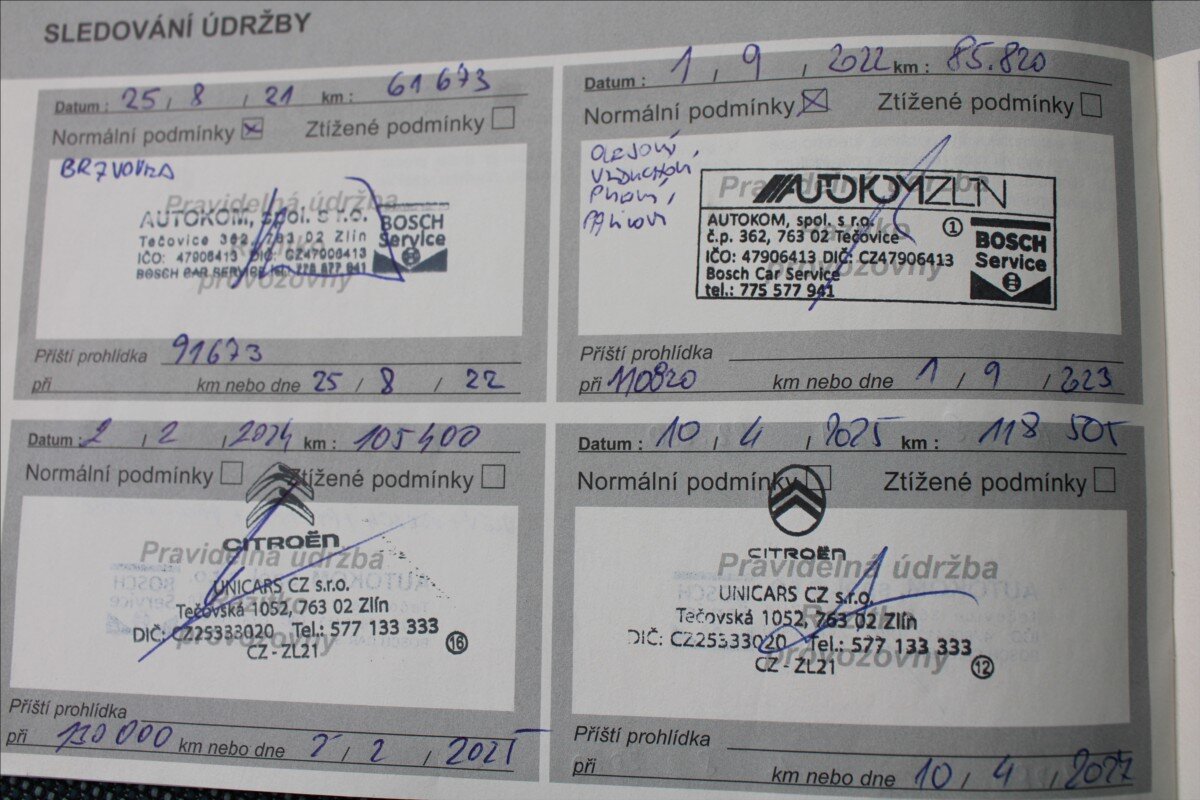 SLEDOVÁNÍ ÚDRŽBY
Datum : 25 / 8 / 21 km : 61 673
Normální podmínky Ztížené podmínky
Pravidelná údržba
AUTOKOM, spol. s r.o.
Tečovice 362, 763 02 Zlín
IČO: 47906413 DIČ: CZ47906413
BOSCH CAR SERVICE tel. 775 577 941
BOSCH
Service
Razítko
provozovny
Příští prohlídka 91673
při km nebo dne 25 / 8 / 22
Datum : 1 / 9 / 2022 km : 85.820
Normální podmínky Ztížené podmínky
Olejový,
Pravidelná údržba
AUTOKOM ZLÍN
AUTOKOM, spol. s r.o. 1
č.p. 362, 763 02 Tečovice
IČO: 47906413 DIČ: CZ47906413
Bosch Car Service
tel.: 775 577 941
BOSCH
Service
Razítko
provozovny
Příští prohlídka
při 110820 km nebo dne 1 / 9 / 2023
Datum : 2 / 2 / 2024 km : 105400
Normální podmínky Ztížené podmínky
CITROËN
Pravidelná údržba
UNICARS CZ s.r.o.
Razítko
Tečovská 1052, 763 02 Zlín
DIČ: CZ25333020 Tel.: 577 133 333
provozovny
CZ - ZL21 16
Příští prohlídka
při 130 000 km nebo dne 2 / 2 / 2025
Datum : 10 / 4 / 2025 km : 118 505
Normální podmínky Ztížené podmínky
CITROËN
Pravidelná údržba
UNICARS CZ s.r.o.
Razítko
Tečovská 1052, 763 02 Zlín
DIČ: CZ25333020 Tel.: 577 133 333
provozovny
CZ - ZL21 12
Příští prohlídka
při km nebo dne 10 / 4 / 2027